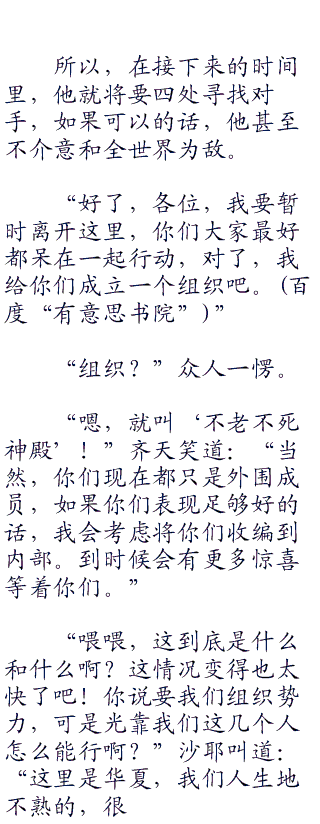 所以，在接下来的时间
里，他就将要四处寻找对
手，如果可以的话，他甚至
不介意和全世界为敌。
“好了，各位，我要暂
时离开这里，你们大家最好
都呆在一起行动，对了，我
给你们成立一个组织吧。(百
度“有意思书院”)”
“组织？”众人一愣。
“嗯，就叫‘不老不死
神殿’！”齐天笑道：“当
然，你们现在都只是外围成
员，如果你们表现足够好的
话，我会考虑将你们收编到
内部。到时候会有更多惊喜
等着你们。”
“喂喂，这到底是什么
和什么啊？这情况变得也太
快了吧！你说要我们组织势
力，可是光靠我们这几个人
怎么能行啊？”沙耶叫道：
“这里是华夏，我们人生地
不熟的，很